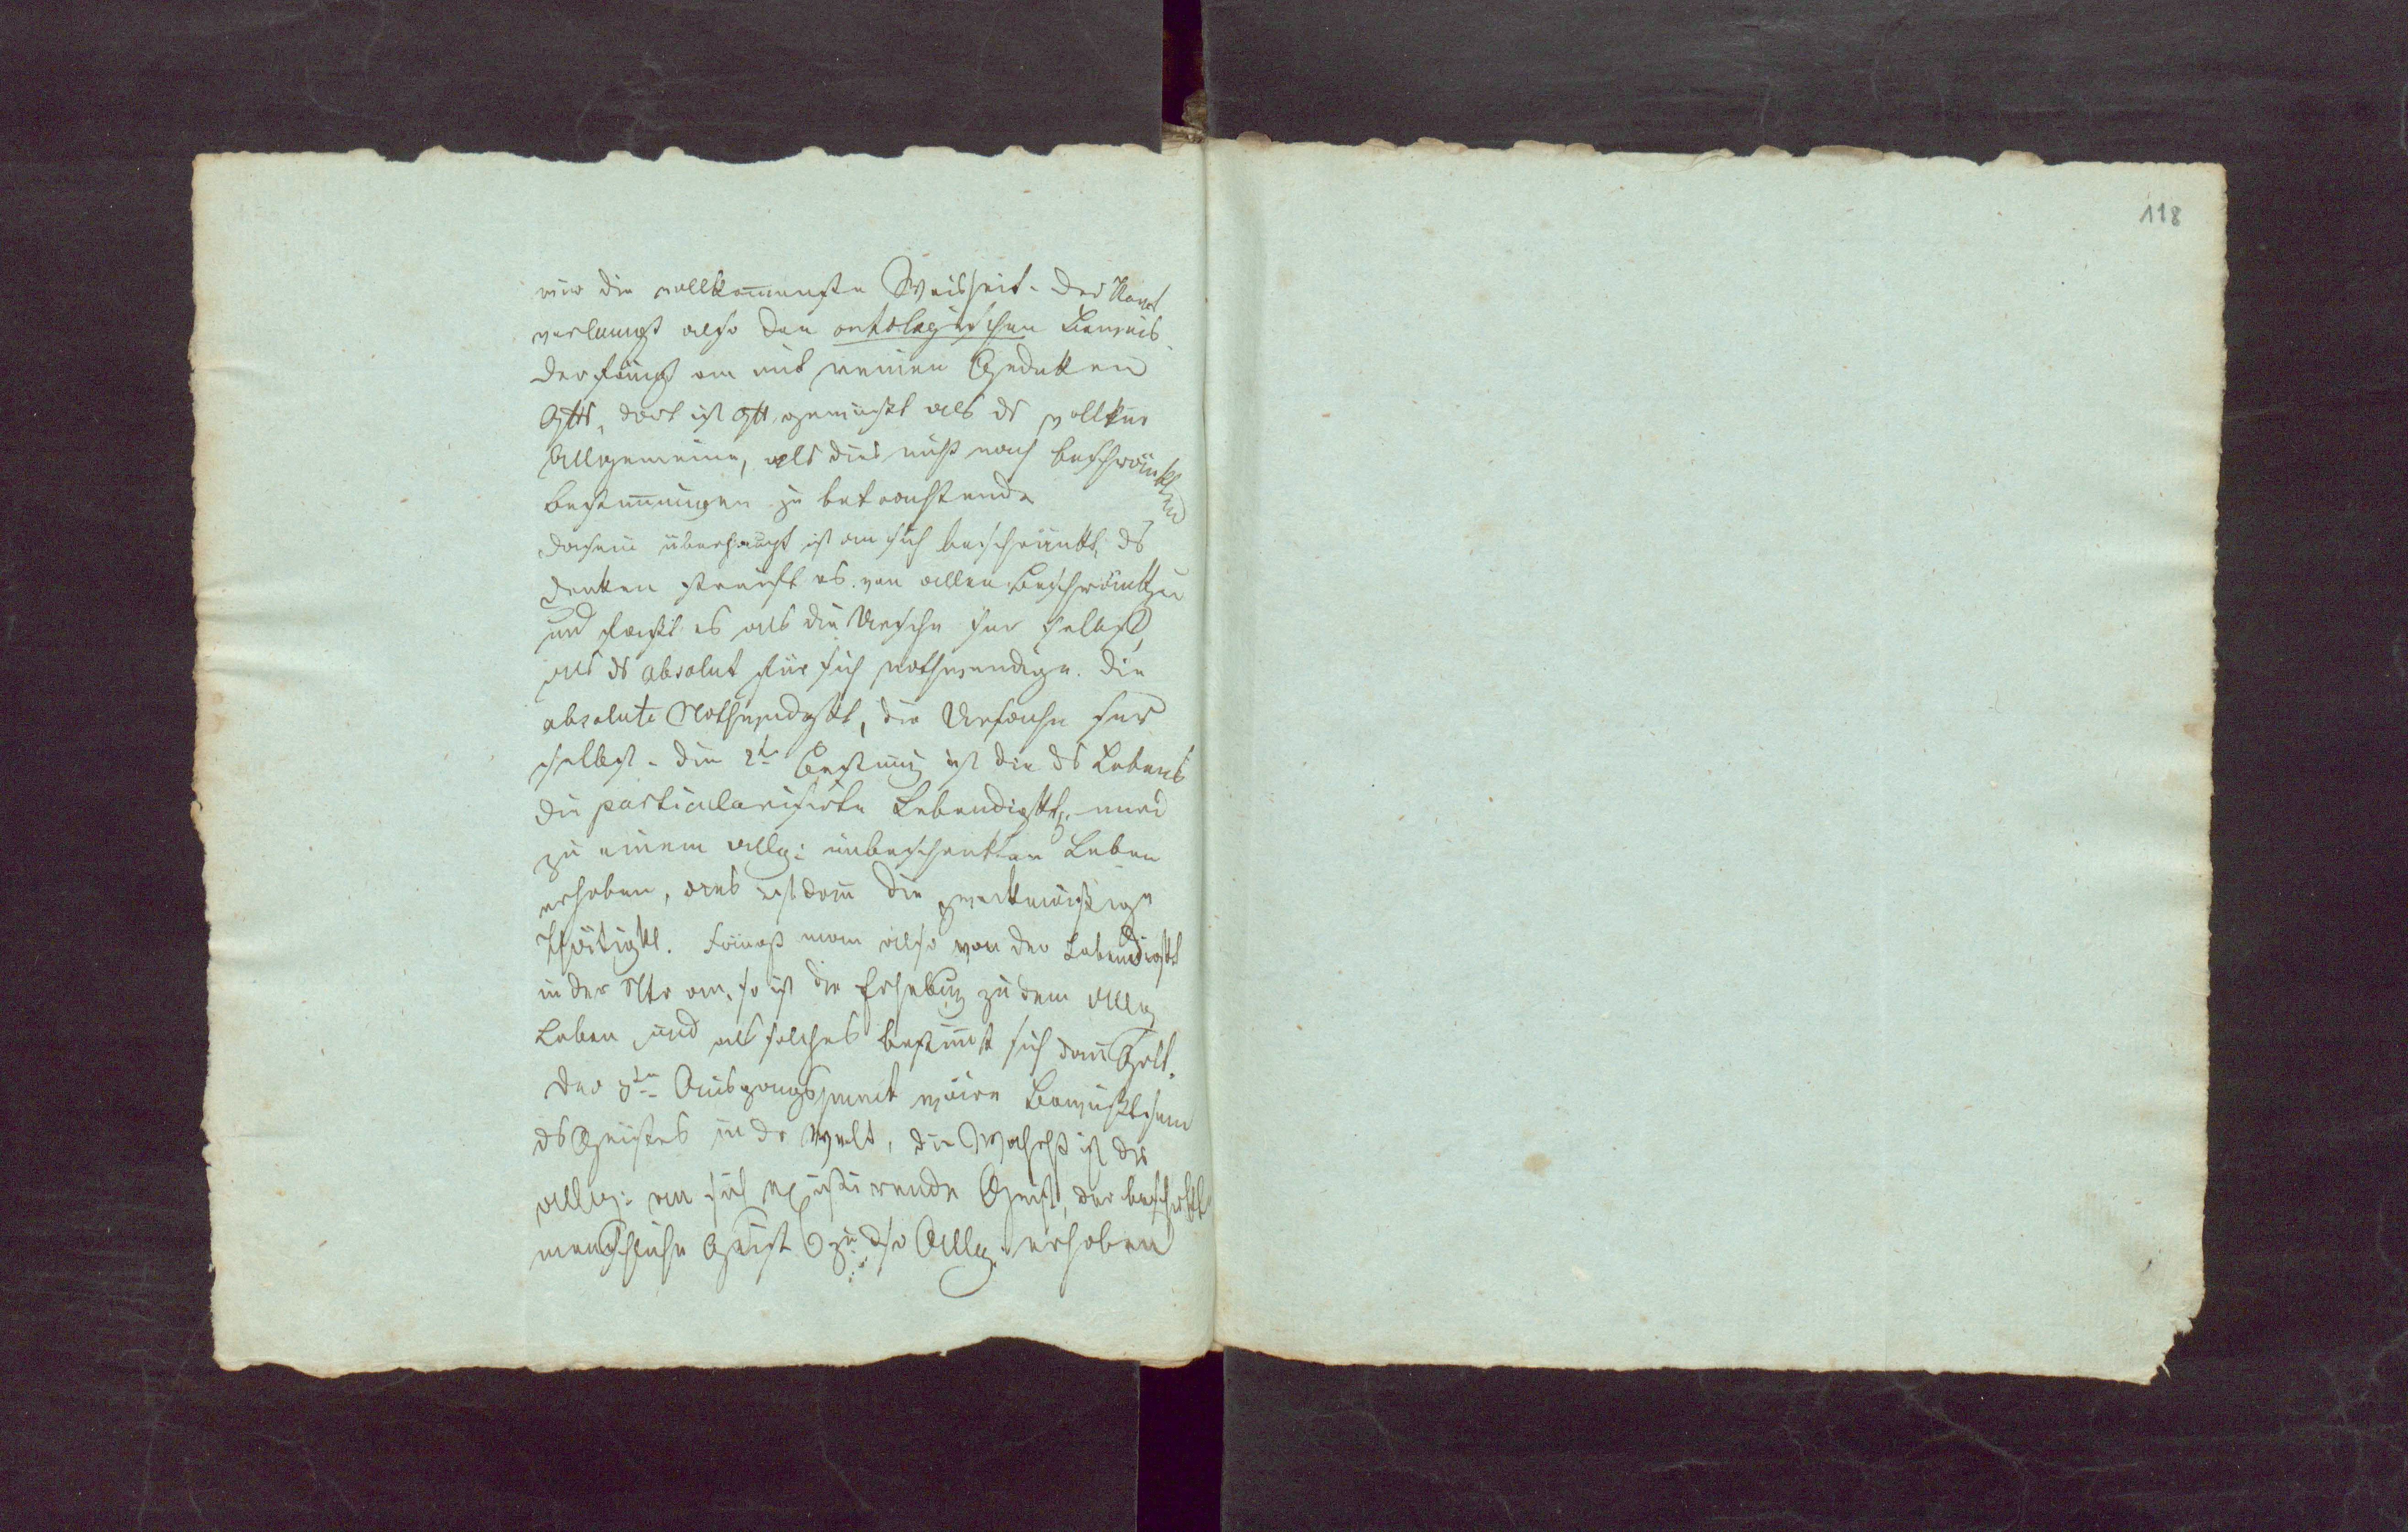 nur die vollkom̄enste Weisheit. Der Kant
verlangt also den ontologischen Beweis.
Der fängt an mit reinen Gedakken
Gtts, dort ist Gtt gewußt als ds
Allgemeine, als dies nicht nach beschränkten
Bestim̄ungen zu betrachtende
Dasein überhaupt ist an sich beschränkt, ds
Denken streift es von allen Beschränktg
und faßt es als die Ursache sr selbst,
als ds absolut für sich nothwendige. Die
absolute Nothwendgkt, die Ursache sr
selbst. Die 2te Bestim̄g ist die ds Lebens
die particularisirte Lebendigkt, wird
zu einem allg: unbeschrenkten Leben
erhoben, dies ist dan̄ die zweckmäßige
Thätigkt. Fängt man also von der Lebendigkt
in der Ntr an, so ist die Erhebug zu dem allg
Leben, und als solches bestim̄t sich dan̄ Gott.
Der 3te Ausgangspunct wäre Bewußtsein
ds Geistes in dr Welt, die Wahrht ist der
allg: an sich existirende Geist, der beschrkt
menschliche Geist zu dsr Allg. erhoben
118